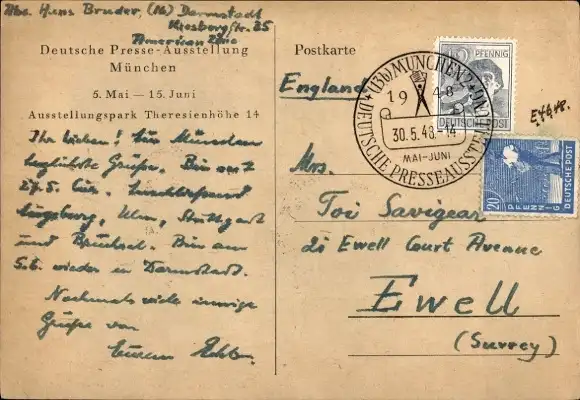 Abs. Hans Bruder, (16) Darmstadt
Niesbergstr. 35
American Zone
Deutsche Presse-Ausstellung
München
5. Mai — 15. Juni
Ausstellungspark Theresienhöhe 14
Postkarte
England
(13b) MÜNCHEN 2
1948
30.5.48.-14
MAI-JUNI
DEUTSCHE PRESSEAUSSTELLUNG
12 PFENNIG
DEUTSCHE POST
20 PFENNIG
DEUTSCHE POST
Ihr Lieben! Aus München
herzliche Grüße. Bin seit
27.5. hier. Anschliessend
Augsburg, Ulm, Stuttgart
und Bruchsal. Bin am
5.6. wieder in Darmstadt.
Nochmals viele innige
Grüße von
Eurem
Mrs.
Toi Savigear
21 Ewell Court Avenue
Ewell
(Surrey)